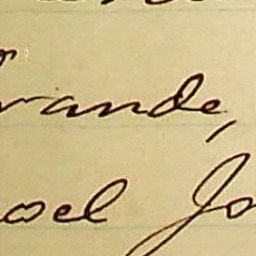 rande,
oel Jo